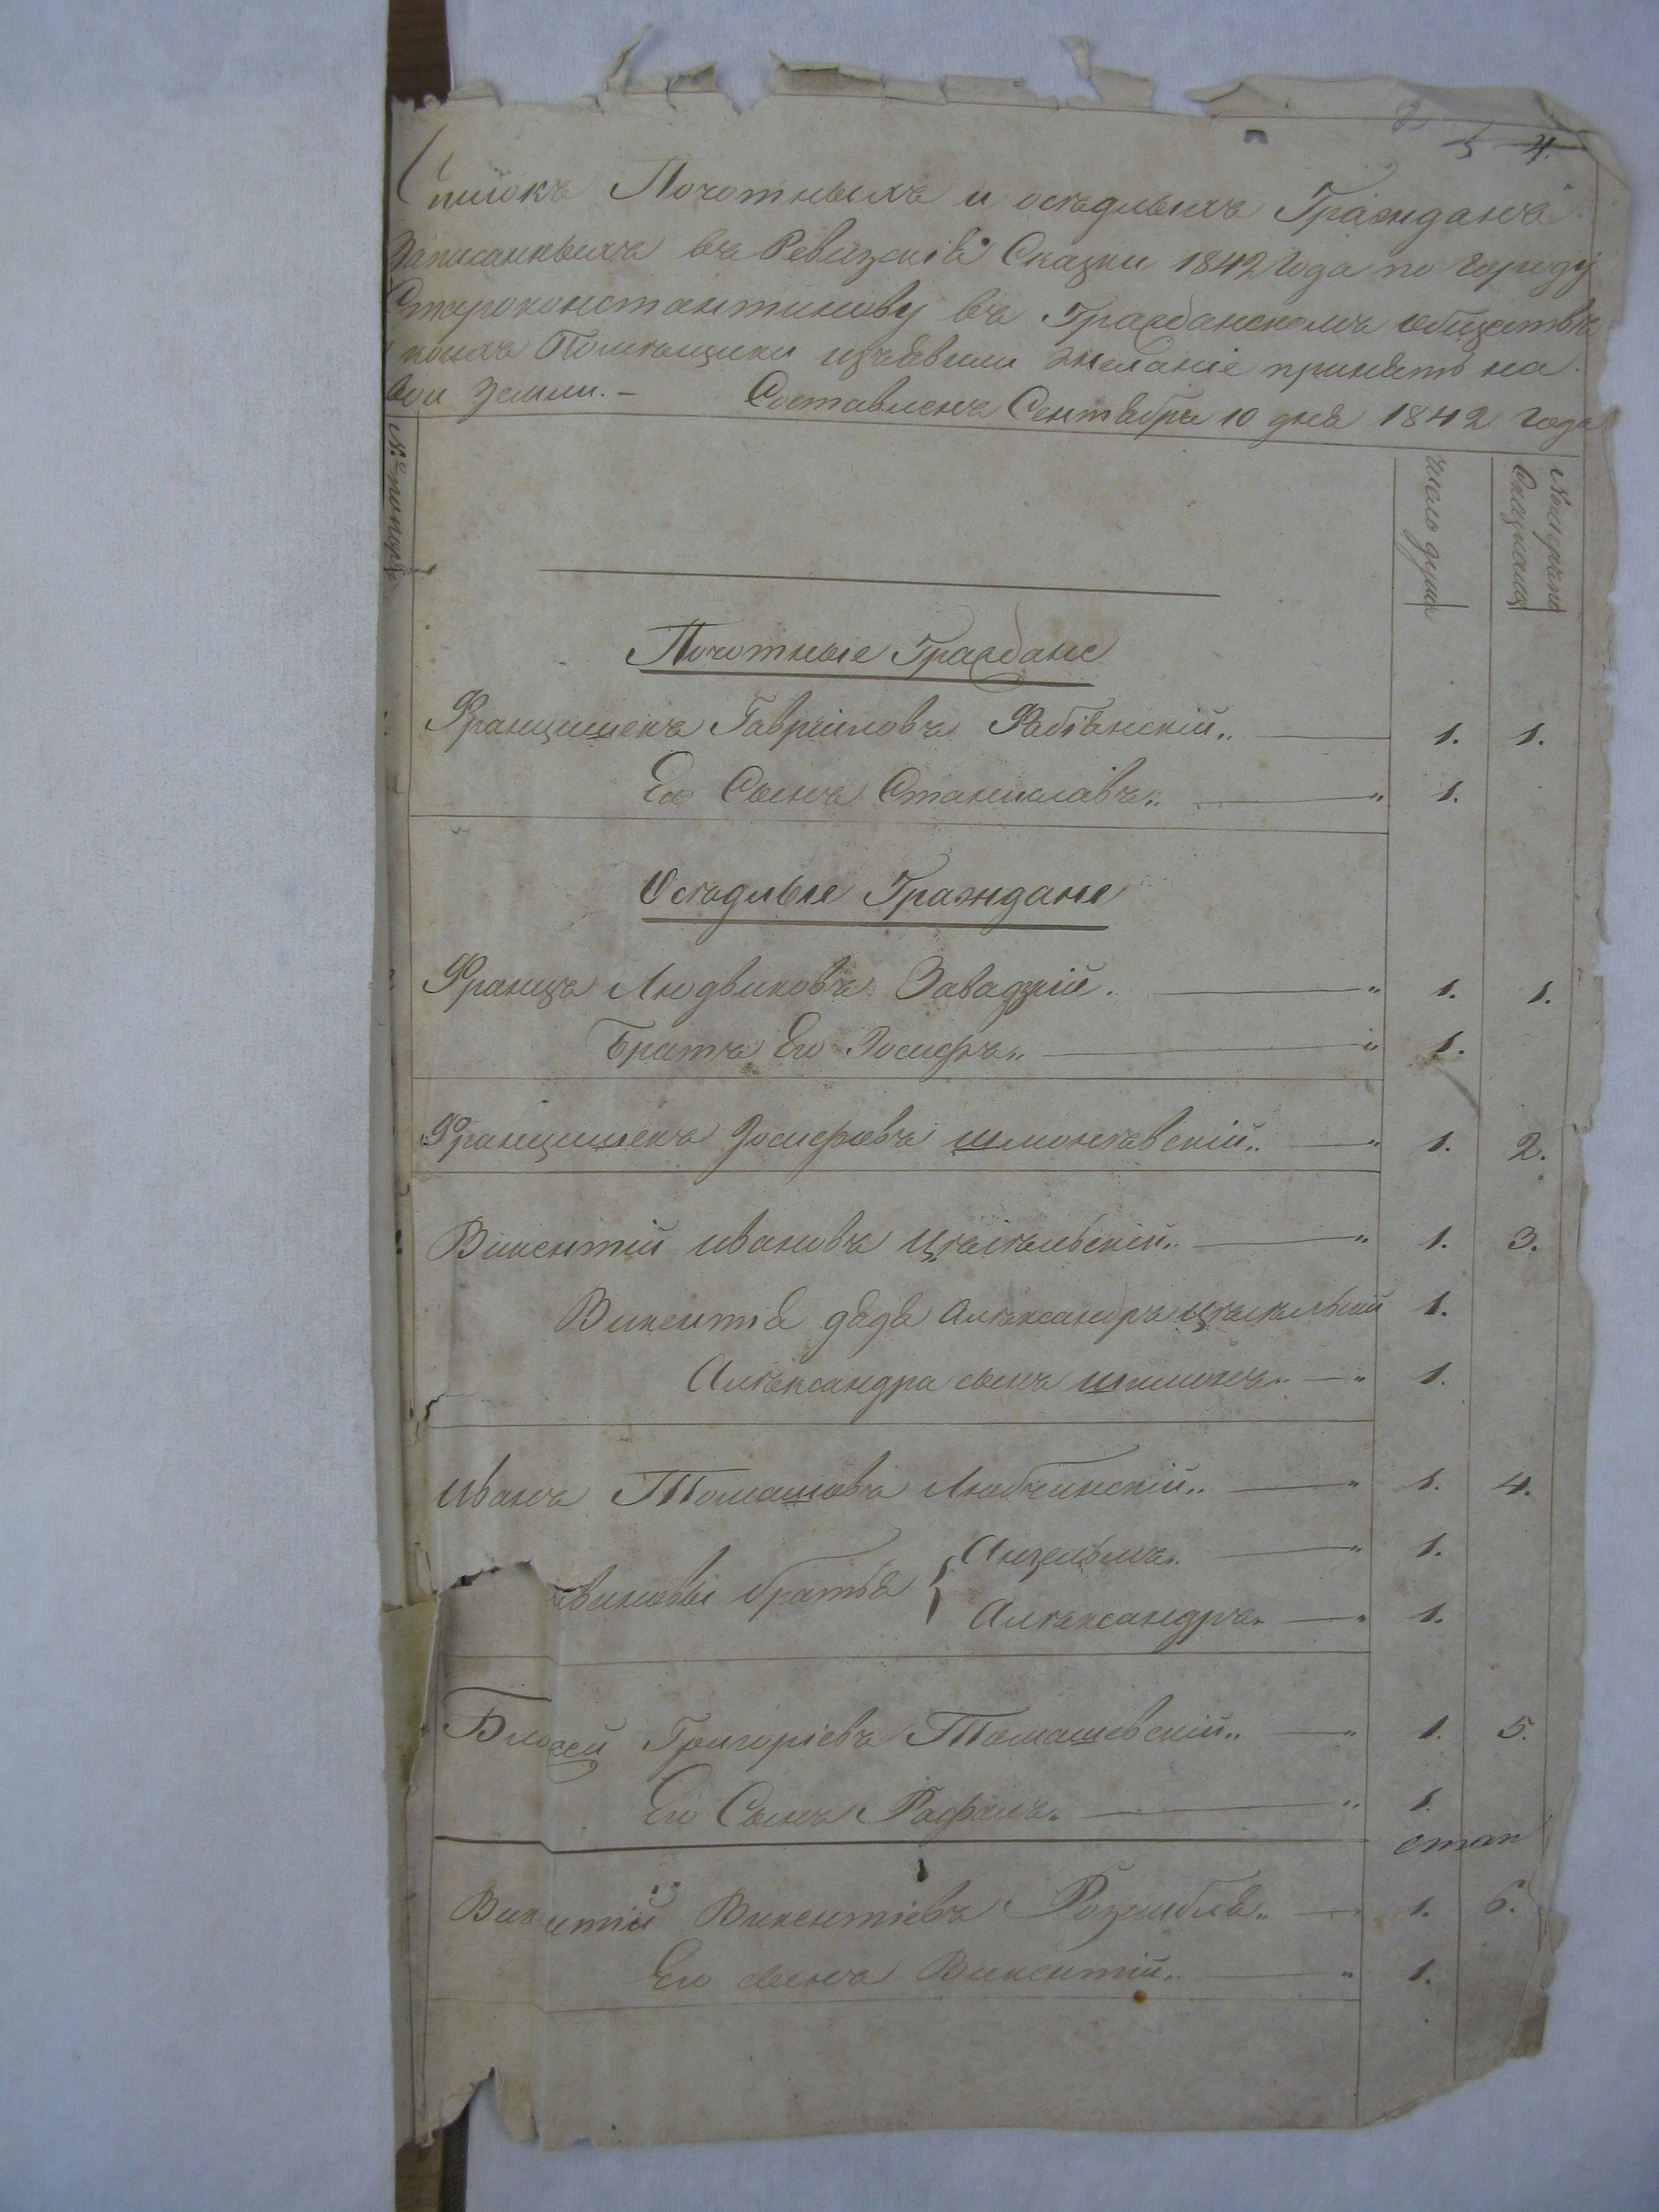 2
5 4.
Списокъ Почотныхъ и осѣдлыхъ Гражданъ
Записанныхъ въ Ревизскія Сказки 1842 Года по Городу
Староконстантинову въ Гражданскомъ обществѣ
коихъ Помѣщики изъявили желаніе принять на
вои Земли. — Составленъ Сентября 10 дня 1842 Года
№ по поряд
число душъ
Номерація Сказкамъ
Почотные Граждане
Францишекъ Гавриловъ Фабіянскій „ 1. 1.
Его Сынъ Станиславъ „ 1.
Осѣдлые Граждане
Францъ Людвиковъ Завадзкій. „ 1. 1.
Братъ Его Іосифъ „ 1.
Францишекъ Іосифовъ „ 1. 2.
Викентій Ивановъ Цѣгѣльскій „ 1. 3.
Викентія дядя Алѣксандръ 1.
Алѣксандра сынъ Шимонъ „ 1.
Иванъ Томашовъ Любчинскій „ 1. 4.
вановы братья { Анзельмъ „ 1.
Алѣксандръ „ 1.
Блажей Григоріевъ Томашевскій „ 1. 5.
Его Сынъ Рафалъ „ 1.
Викентій Викентіевъ „ 1. 6.
Его сынъ Викентій „ 1.